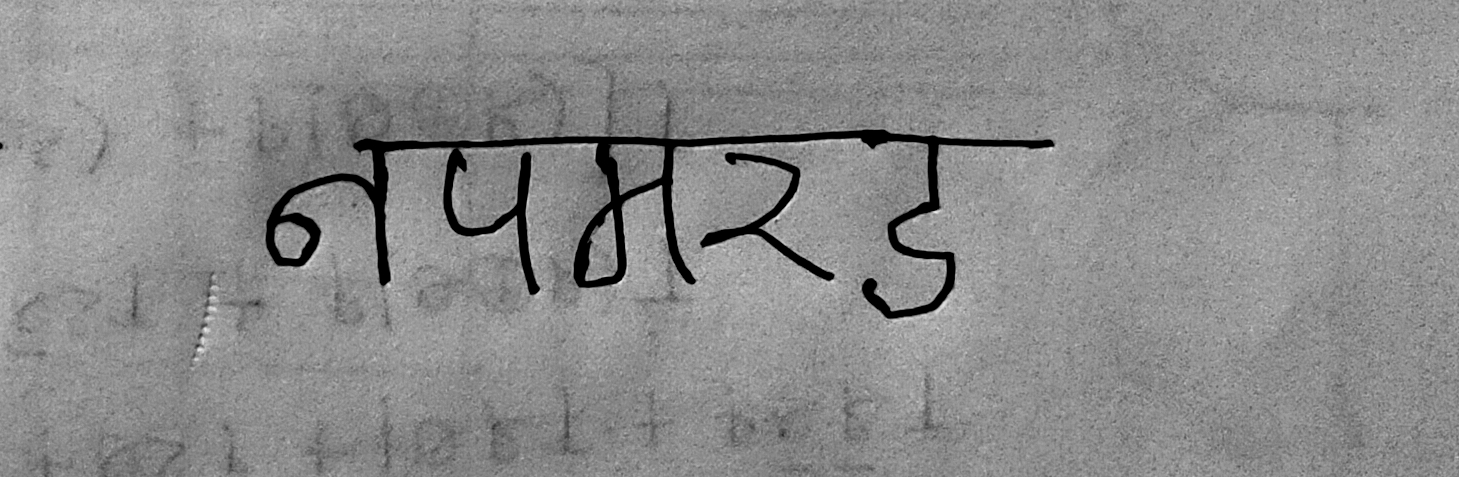 नपमरड